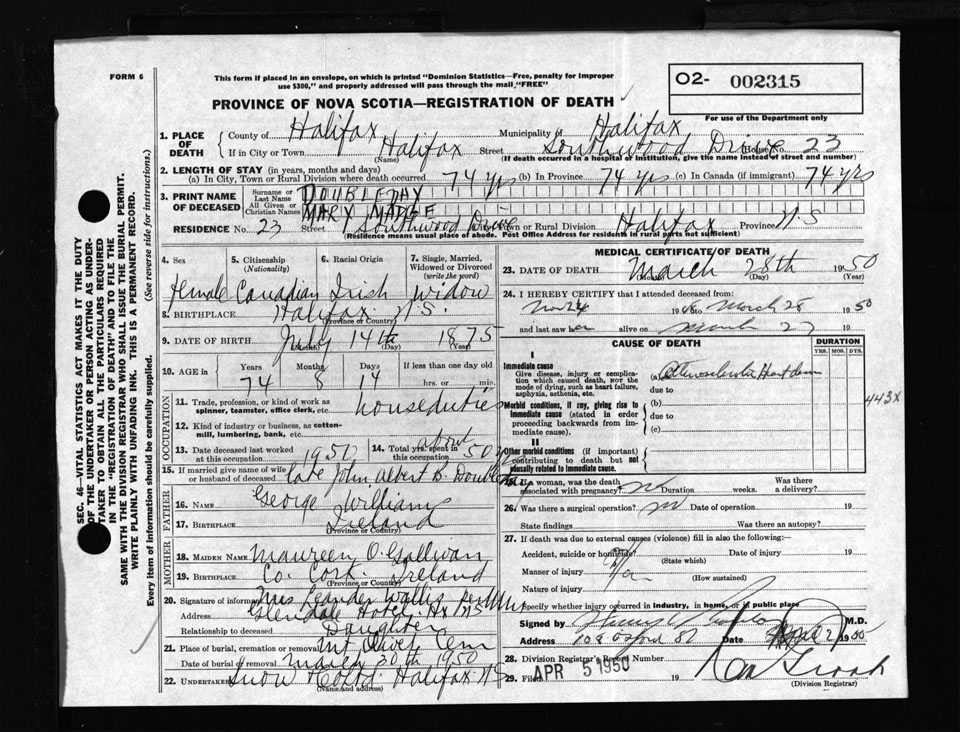 FORM 6
This form if placed in an envelope, on which is printed "Dominion Statistics—Free, penalty for improper
use $300," and properly addressed will pass through the mail "FREE"
O2- 002315
For use of the Department only
PROVINCE OF NOVA SCOTIA—REGISTRATION OF DEATH
1. PLACE OF DEATH
County of Halifax Municipality of Halifax
If in City or Town Halifax Street Southwood Drive House No. 23
(Name) (If death occurred in a hospital or institution, give the name instead of street and number)
2. LENGTH OF STAY (in years, months and days)
(a) In City, Town or Rural Division where death occurred 74 yrs (b) In Province 74 yrs (c) In Canada (if immigrant) 74 yrs
3. PRINT NAME OF DECEASED
Surname or Last Name DOUBLEDAY
All Given or Christian Names MARY MADGE
RESIDENCE No. 23 Street Southwood Drive Town or Rural Division Halifax Province N.S
(Residence means usual place of abode. Post Office Address for residents in rural parts not sufficient)
4. Sex 5. Citizenship (Nationality) 6. Racial Origin 7. Single, Married, Widowed or Divorced (write the word)
female Canadian Irish widow
8. BIRTHPLACE Halifax N.S.
(Province or Country)
9. DATE OF BIRTH July 14th 1875
(Month) (Day) (Year)
10. AGE in Years Months Days If less than one day old
74 8 14 hrs. or min.
OCCUPATION
11. Trade, profession or kind of work as spinner, teamster, office clerk, etc. houseduties
12. Kind of industry or business, as cotton-mill, lumbering, bank, etc.
13. Date deceased last worked at this occupation 1950 14. Total yrs. spent in this occupation about 50
15. If married give name of wife or husband of deceased Late John Albert B. Doubleday
FATHER
16. NAME George William
17. BIRTHPLACE Ireland
(Province or Country)
MOTHER
18. MAIDEN NAME Maureen O'Gallivan
19. BIRTHPLACE Co. Cork Ireland
(Province or Country)
20. Signature of informant Mrs Leander Wallis
Address Glendale Hotel, Hx NS
Relationship to deceased Daughter
21. Place of burial, cremation or removal Mt Olivet Cem
Date of burial or removal March 30th 1950
22. Undertaker Snow & Co Ltd. Halifax NS
(Name and address)
MEDICAL CERTIFICATE OF DEATH
23. DATE OF DEATH March 28th 1950
(Month) (Day) (Year)
24. I HEREBY CERTIFY that I attended deceased from
Nov 24 1948 to March 28 1950
and last saw her alive on March 27 19
CAUSE OF DEATH DURATION
YRS. MOS. DYS.
I
Immediate cause
Give disease, injury or complication which caused death, NOT the mode of dying, such as heart failure, asphyxia, asthenia, etc.
(a)
due to
443X
Morbid conditions, if any, giving rise to immediate cause (stated in order proceeding backwards from immediate cause).
(b)
due to
(c)
II
Other morbid conditions (if important) contributing to death but not causally related to immediate cause.
25. If a woman, was the death associated with pregnancy? no Duration weeks. Was there a delivery?
26. Was there a surgical operation? no Date of operation 19
State findings Was there an autopsy?
27. If death was due to external causes (violence) fill in also the following:—
Accident, suicide or homicide? Date of injury 19
(State which)
Manner of injury
(How sustained)
Nature of injury
Specify whether injury occurred in industry, in home, or in public place
Signed by M.D.
Address 108 Oxford St Date
28. Division Registrar's Record Number
29. Filed APR 5 1950 19
(Division Registrar)
SEC. 46—VITAL STATISTICS ACT MAKES IT THE DUTY
OF THE UNDERTAKER OR PERSON ACTING AS UNDER-
TAKER TO OBTAIN ALL THE PARTICULARS REQUIRED
IN THE "REGISTRATION OF DEATH" AND TO FILE THE
SAME WITH THE DIVISION REGISTRAR WHO SHALL ISSUE THE BURIAL PERMIT.
WRITE PLAINLY WITH UNFADING INK. THIS IS A PERMANENT RECORD.
Every item of information should be carefully supplied. (See reverse side for instructions.)